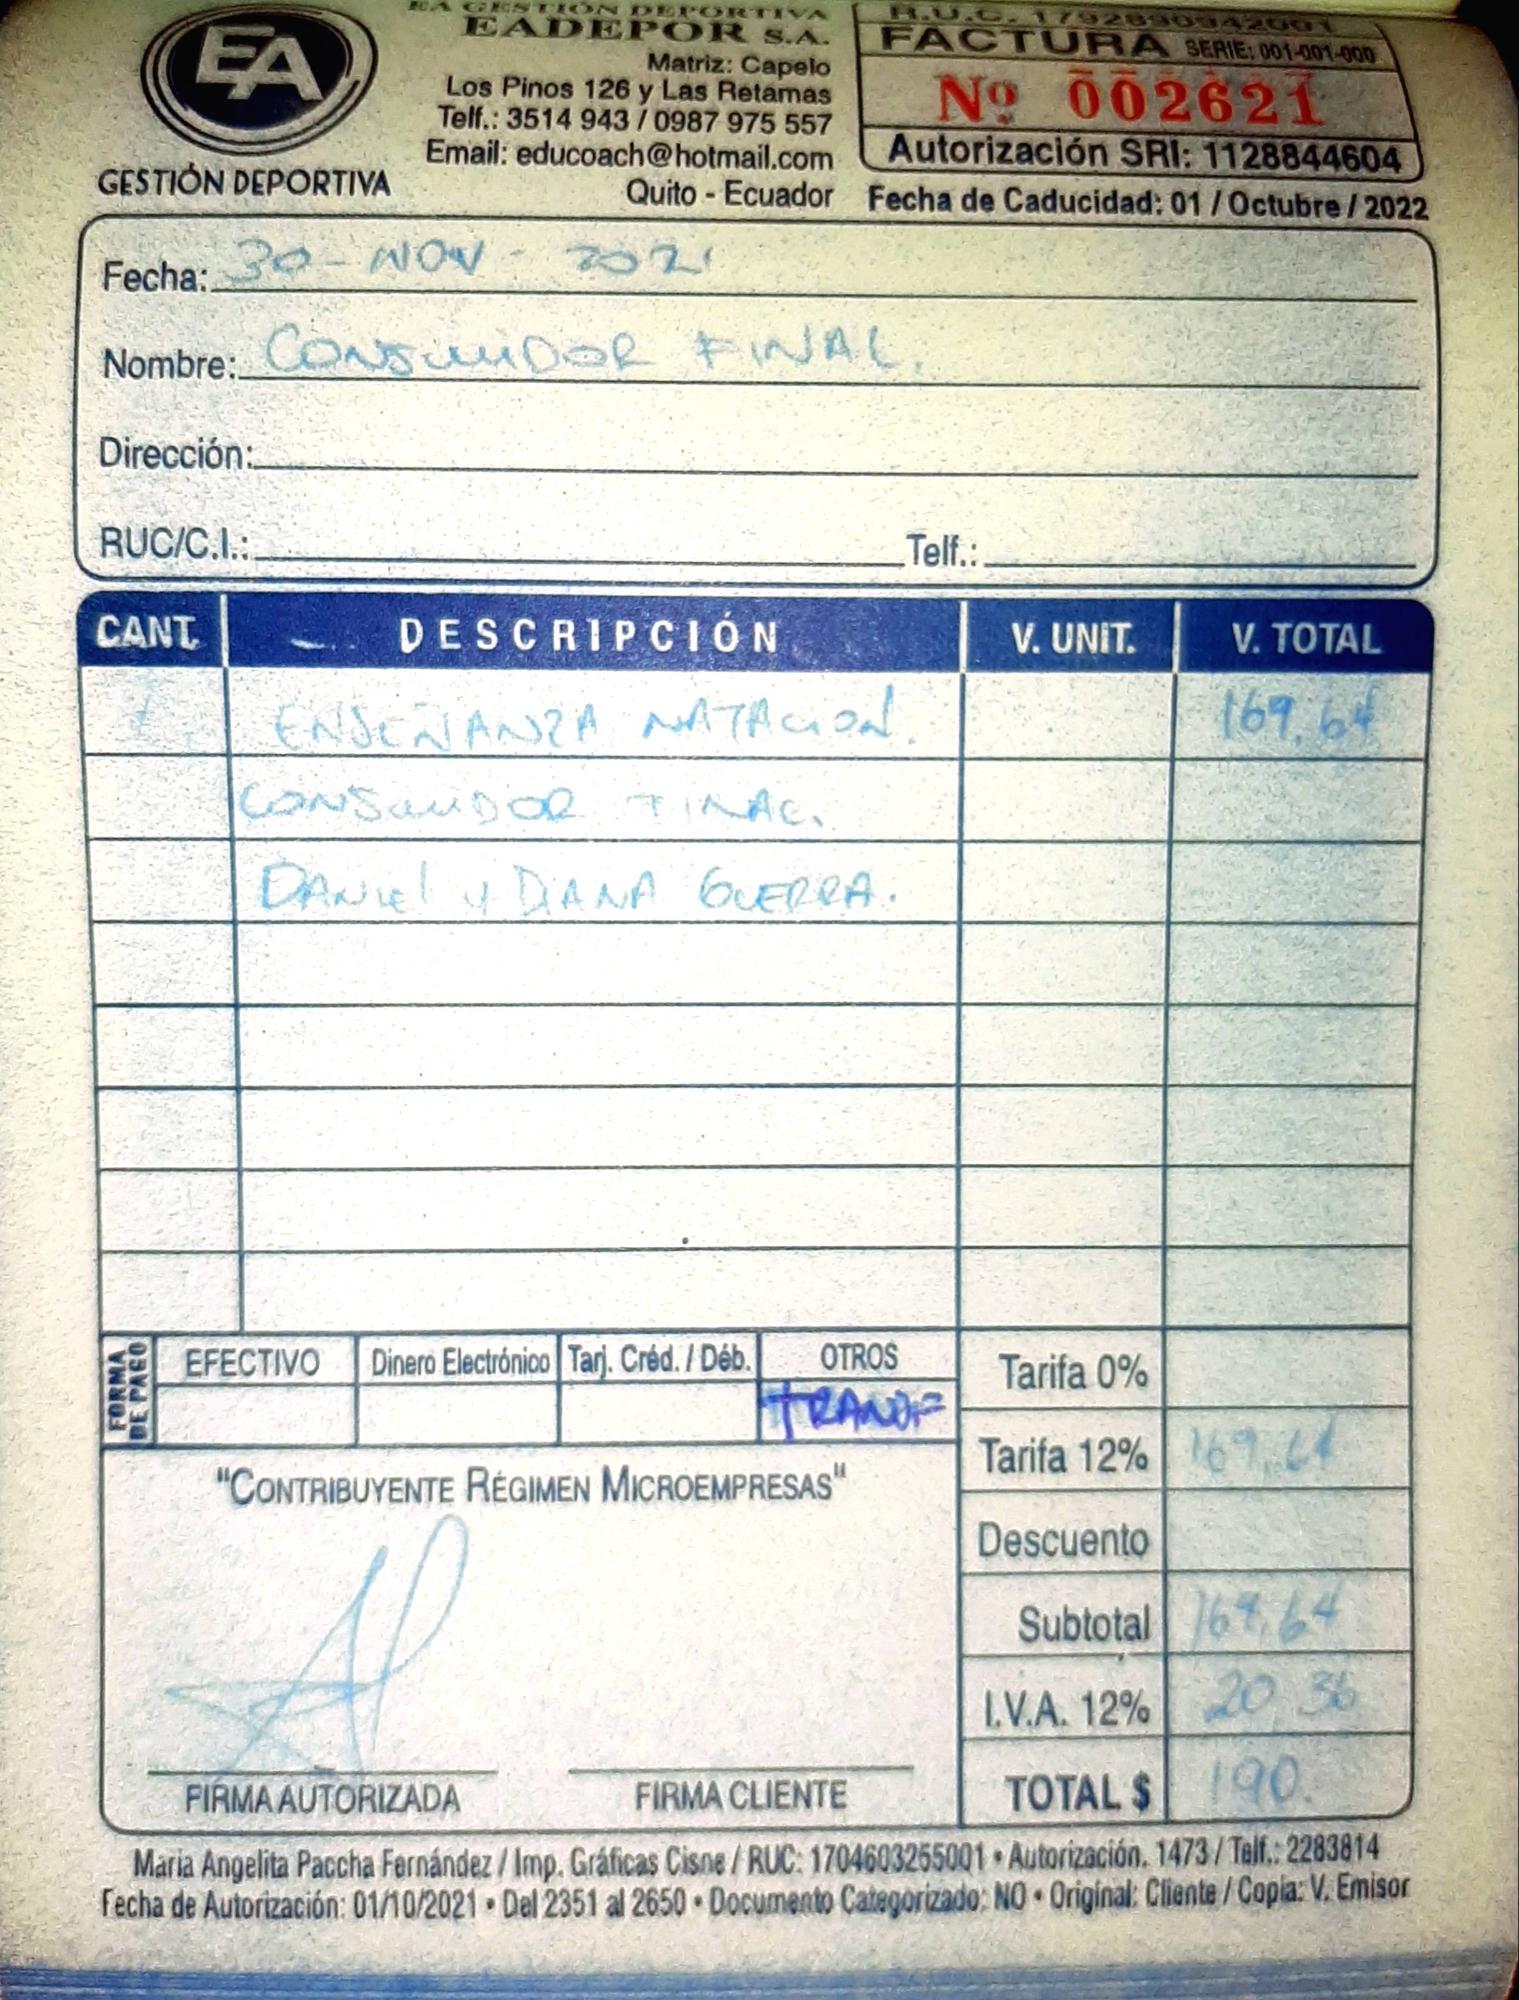 EA GESTIÓN DEPORTIVA
EADEPOR S.A.
Matriz: Capelo
Los Pinos 126 y Las Retamas
Telf.: 3514 943 / 0987 975 557
Email: educoach@hotmail.com
Quito - Ecuador
EA
GESTIÓN DEPORTIVA
R.U.C. 1792890942001
FACTURA SERIE: 001-001-000
Nº 002621
Autorización SRI: 1128844604
Fecha de Caducidad: 01 / Octubre / 2022
Fecha: 30 - NOV - 2021
Nombre: CONSUMIDOR FINAL.
Dirección:
RUC/C.I.: Telf.:
CANT. DESCRIPCIÓN V. UNIT. V. TOTAL
ENSEÑANZA NATACION. 169.64
CONSUMIDOR FINAL.
DANIEL Y DIANA GUERRA.
FORMA DE PAGO
EFECTIVO Dinero Electrónico Tarj. Créd. / Déb. OTROS
TRANSF
Tarifa 0%
Tarifa 12% 169.64
Descuento
Subtotal 169.64
I.V.A. 12% 20.36
TOTAL $ 190.
"CONTRIBUYENTE RÉGIMEN MICROEMPRESAS"
FIRMA AUTORIZADA FIRMA CLIENTE
Maria Angelita Paccha Fernández / Imp. Gráficas Cisne / RUC: 1704603255001 • Autorización. 1473 / Telf.: 2283814
Fecha de Autorización: 01/10/2021 • Del 2351 al 2650 • Documento Categorizado: NO • Original: Cliente / Copia: V. Emisor